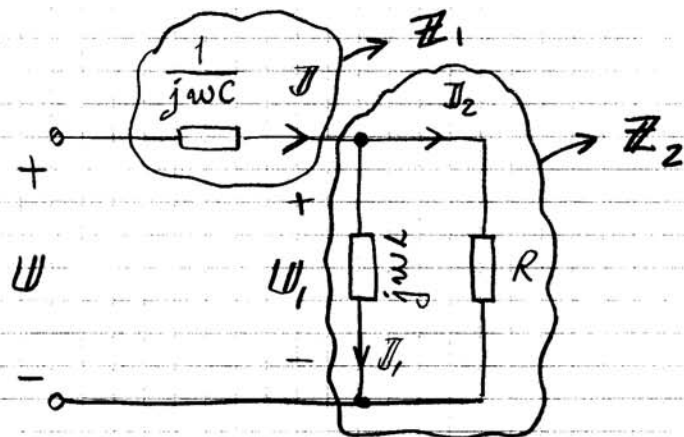 Z1
1
jωC
I
I2
Z2
+
+
U
U1
jωL
R
-
-
I1